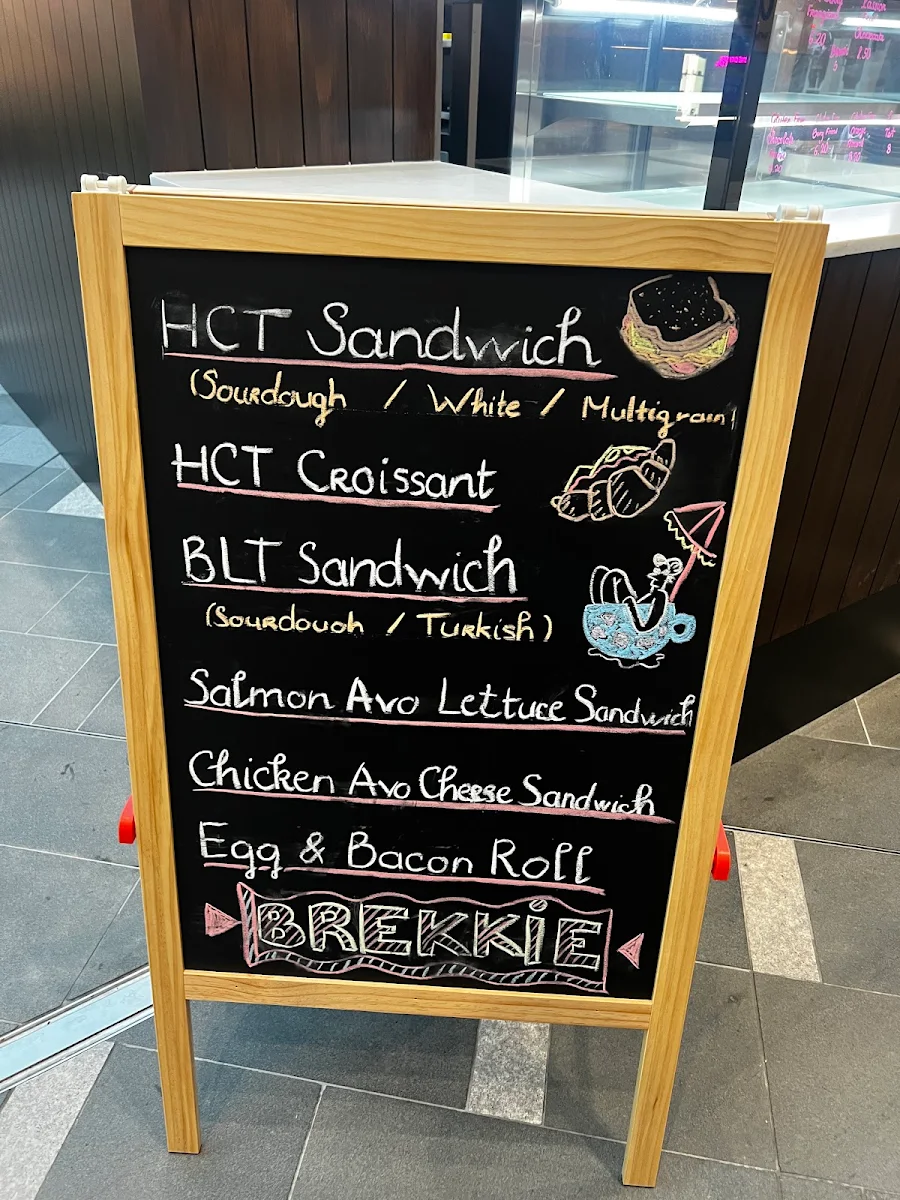 HCT Sandwich
(Sourdough / White / Multigrain)
HCT Croissant
BLT Sandwich
(Sourdouoh / Turkish)
Salmon Avo Lettuce Sandwich
Chicken Avo Cheese Sandwich
Egg & Bacon Roll
BREKKiE